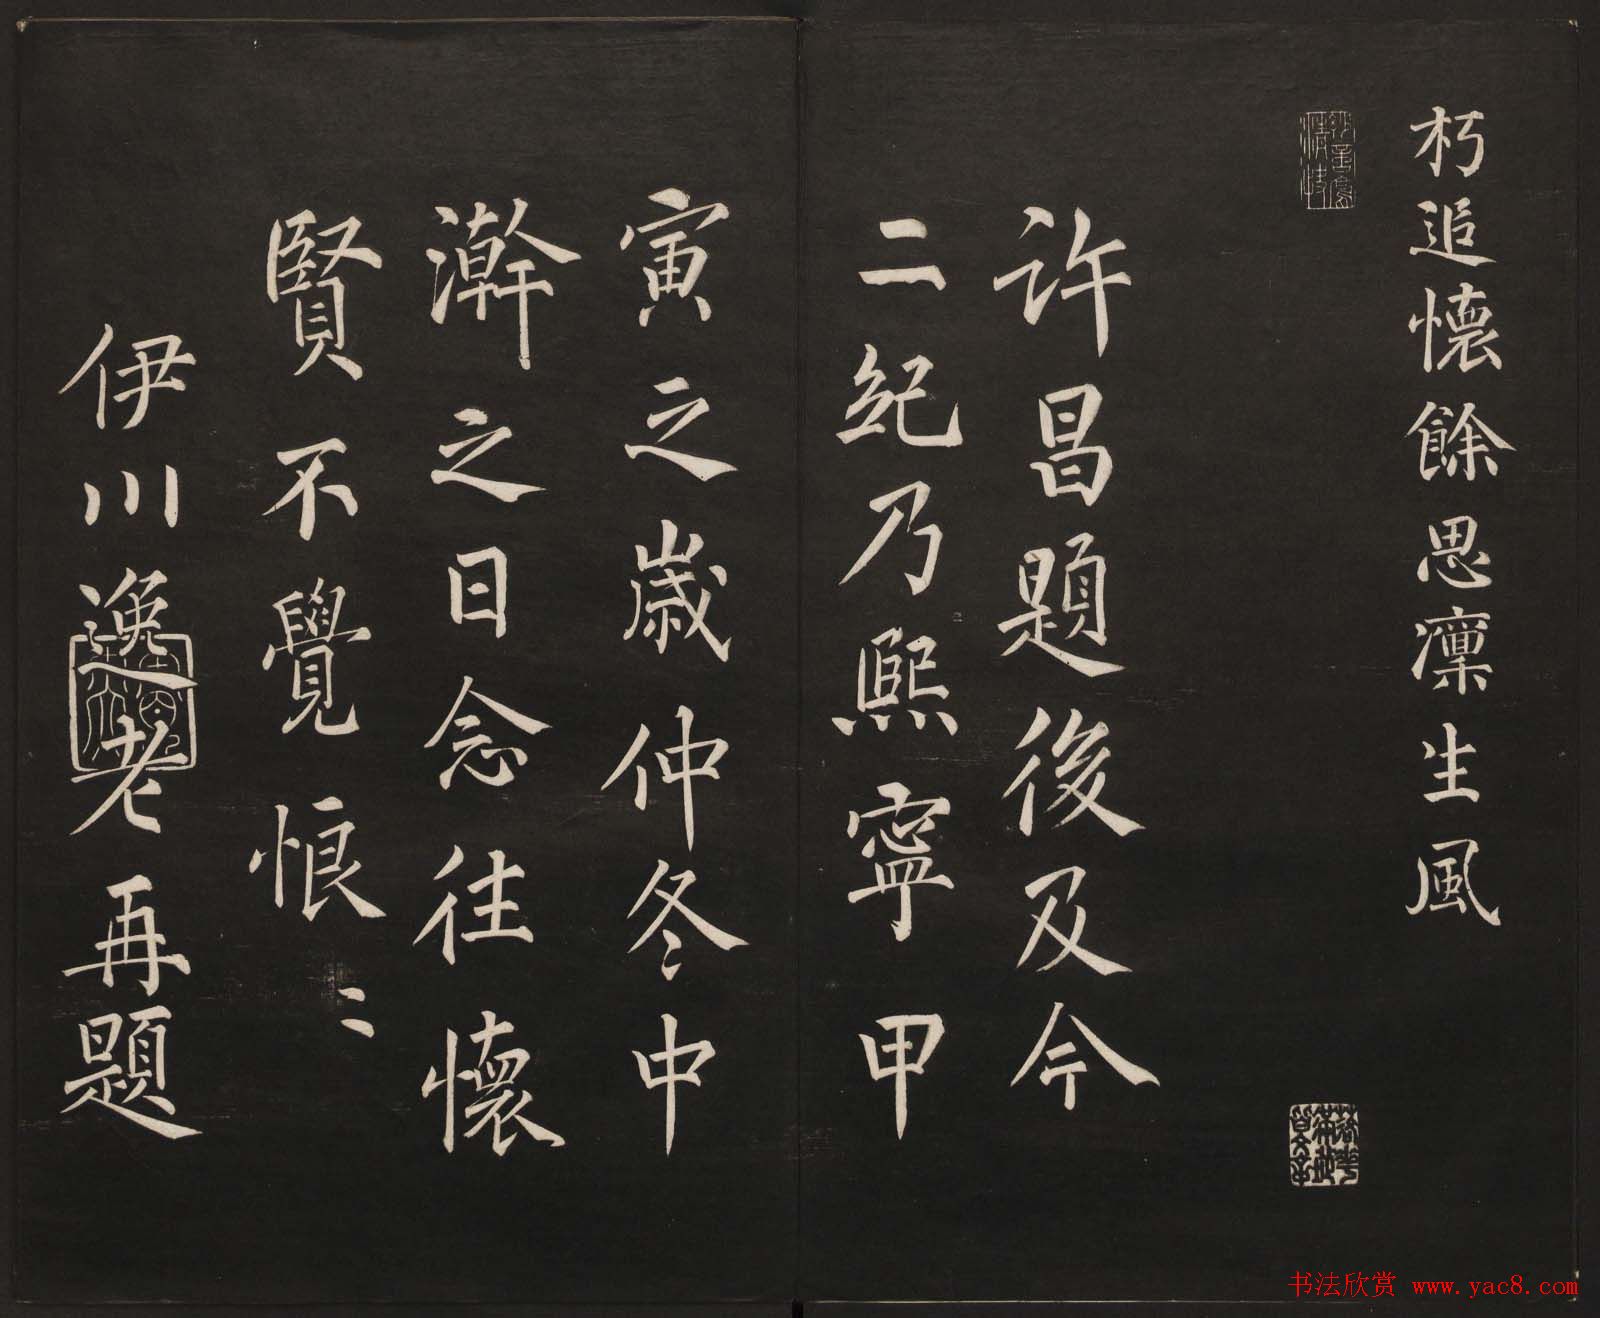 朽追懷餘思凜生風
許昌題後及今
二紀乃熙寧甲
寅之歲仲冬中
澣之日念往懷
賢不覺悢〻
伊川逸老再題
书法欣赏 www.yac8.com